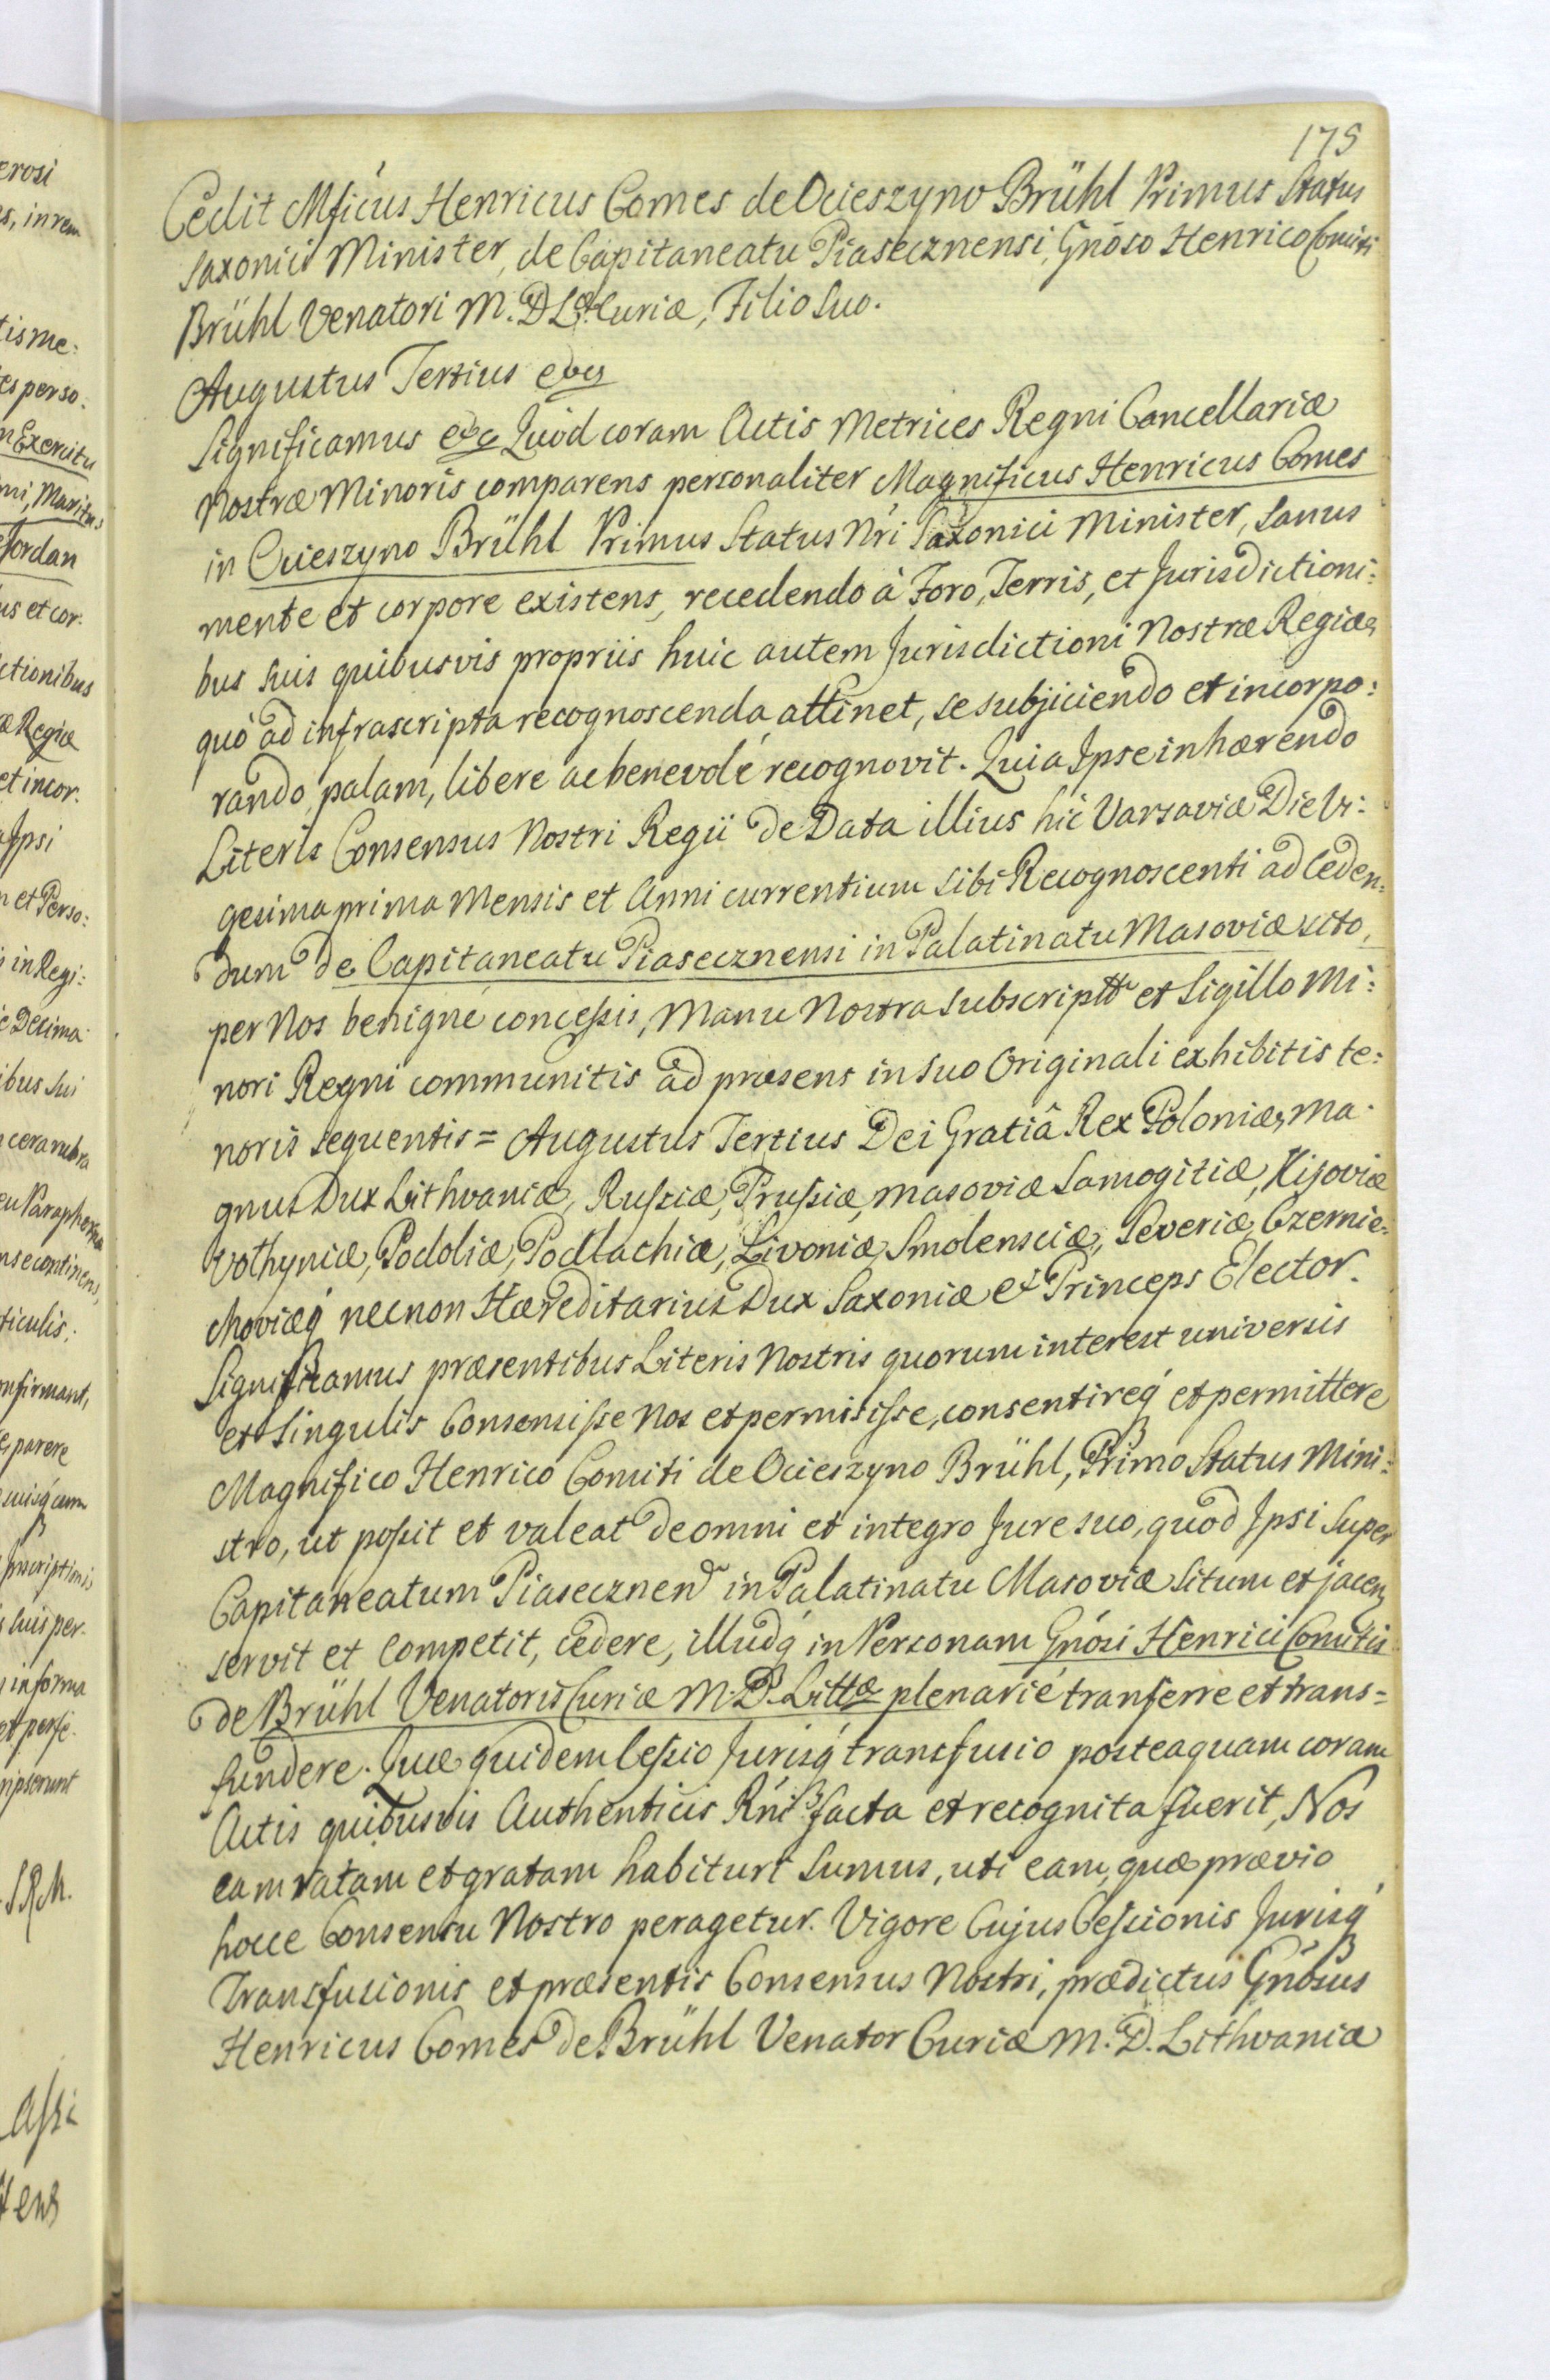 175
Cedit Mficus Henricus Comes de Ocieszyno Brühl Primus Status
Saxonici Minister, de Capitaneatu Piasecznensi, Gnoso Henrico Comiti
Brühl Venatori M. D. L. Curiæ, Filio Suo.
Augustus Tertius etc
Significamus etc Quod coram Actis Metrices Regni Cancellariæ
Nostræ Minoris comparens personaliter Magnificus Henricus Comes
in Ocieszyno Brühl Primus Status Nri Saxonici Minister, sanus
mente et corpore existens, recedendo à Foro, Terris, et Jurisdictioni:
bus suis quibusvis propriis huic autem Jurisdictioni Nostræ Regiæ,
quò ad infrascripta recognoscenda attinet, se subjiciendo et incorpo:
rando, palam, libere ac benevolé recognovit. Quia Ipse inhærendo
Literis Consensus Nostri Regii de Data illius hic Varsaviæ Die Vi:
gesima prima Mensis et Anni currentium sibi Recognoscenti ad Ceden:
dum de Capitaneatu Piasecznensi in Palatinatu Masoviæ sito,
per Nos benigné concessis, Manu Nostra subscriptt et Sigillo Mi:
nori Regni communitis ad præsens in suo Originali exhibitis te:
noris sequentis = Augustus Tertius Dei Gratiâ Rex Poloniæ, Ma:
gnus Dux Lithvaniæ, Russiæ, Prussiæ, Masoviæ Samogitiæ, Kijoviæ
Volhyniæ, Podoliæ, Podlachiæ, Livoniæ, Smolensciæ, Severiæ, Czernie:
choviæq́ necnon Hæreditarius Dux Saxoniæ et Princeps Elector.
Significamus præsentibus Literis Nostris quorum interest universis
et Singulis Consensisse Nos et permisisse, consentireq́ et permittere
Magnifico Henrico Comiti de Ocieszyno Brühl, Primo Status Mini:
stro, ut possit et valeat de omni et integro Jure suo, quod Ipsi Super
Capitaneatum Piasecznen in Palatinatu Masoviæ Situm et jacen
servit et Competit, cedere, illudq́ in Personam Gnósi Henrici Comitis
de Brühl Venatoris Curiæ M. D. Littæ plenarié tranferre et trans=
fundere. Quæ quidem Cessio Jurisq́ transfusio posteaquam coram
Actis quibusvis Authenticis Rni facta et recognita fuerit, Nos
eam ratam et gratam habituri Sumus, uti eam, quæ prævio
hocce Consensu Nostro peragetur. Vigore Cujus Cessionis Jurisq́
Transfusionis et præsentis Consensus Nostri, prædictus Gnósus
Henricus Comes de Brühl Venator Curiæ M. D. Lithvaniæ